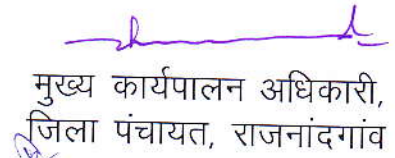 मुख्य कार्यपालन अधिकारी,
जिला पंचायत, राजनांदगांव